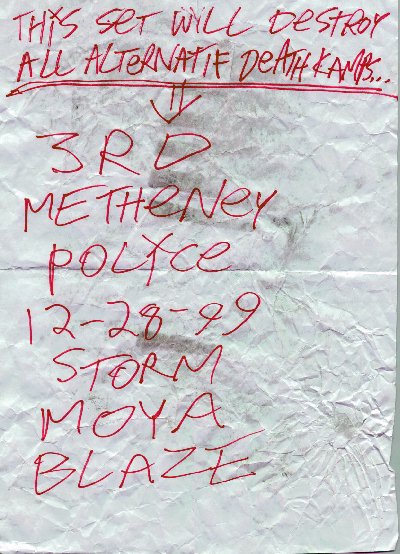 THIS SET WILL DESTROY
ALL ALTERNATIF DEATH KAMPS..
3RD
METHENEY
POLYCE
12-28-99
STORM
MOYA
BLAZE